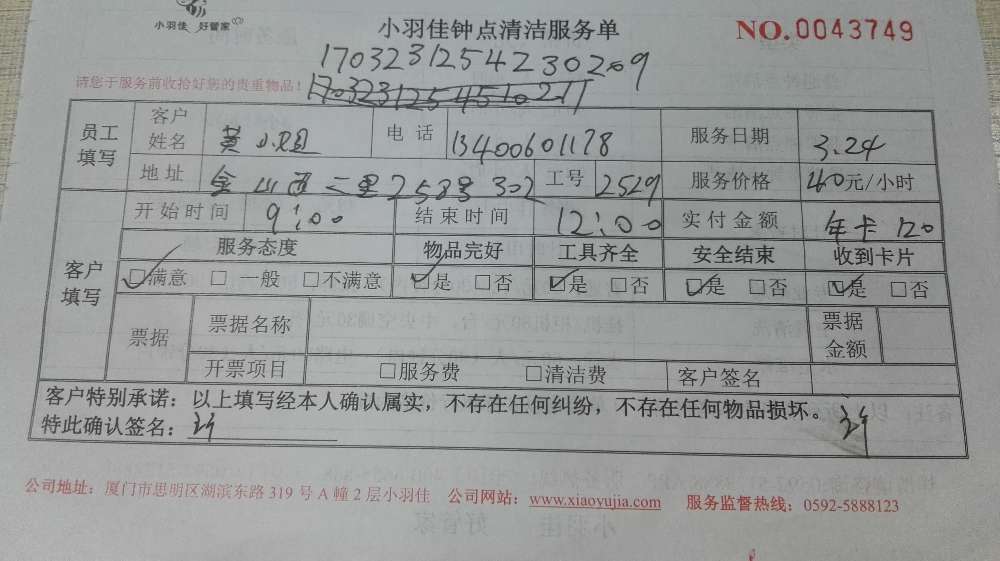 小羽佳 好管家
小羽佳钟点清洁服务单
NO.0043749
1703231254230209
请您于服务前收拾好您的贵重物品！
员工填写 客户姓名 黄小姐 电话 13400601178 服务日期 3.24
地址 金山西二里258号302 工号 2529 服务价格 40元/小时
开始时间 9:00 结束时间 12:00 实付金额 年卡 120
客户填写 服务态度 物品完好 工具齐全 安全结束 收到卡片
☑满意 □一般 □不满意 ☑是 □否 ☑是 □否 ☑是 □否 ☑是 □否
票据 票据名称 票据金额
开票项目 □服务费 □清洁费 客户签名
客户特别承诺：以上填写经本人确认属实，不存在任何纠纷，不存在任何物品损坏。
特此确认签名：
公司地址：厦门市思明区湖滨东路 319 号 A 幢 2 层小羽佳 公司网站：www.xiaoyujia.com 服务监督热线：0592-5888123